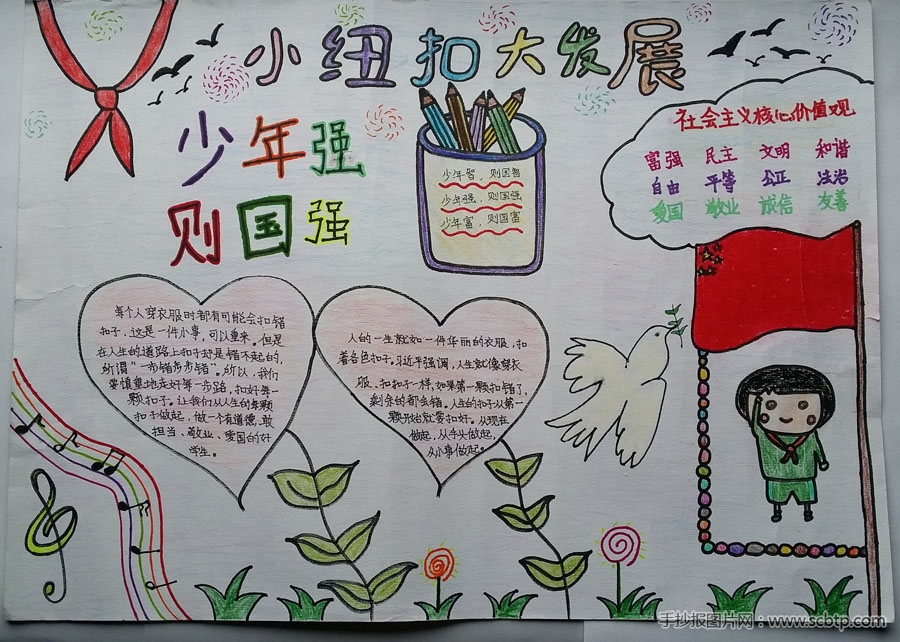 小纽扣大发展
少年强
则国强
少年智，则国智
少年强，则国强
少年富，则国富
社会主义核心价值观
富强 民主 文明 和谐
自由 平等 公正 法治
爱国 敬业 诚信 友善
每个人穿衣服时都有可能会扣错
扣子，这是一件小事，可以重来。但是
在人生的道路上扣子却是错不起的，
所谓"一步错步步错"。所以，我们
要慎重地走好每一步路，扣好每一
颗扣子。让我们从人生的每颗
扣子做起，做一个有道德、敢
担当、敬业、爱国的好
学生。
人的一生就如一件华丽的衣服，扣
着各色扣子。习近平强调，人生就像穿衣
服、扣扣子一样，如果第一颗扣错了，
剩余的都会错。人生的扣子从第一
颗开始就要扣好。从现在
做起，从手头做起，
从小事做起。
手抄报图片网：www.scbtp.com